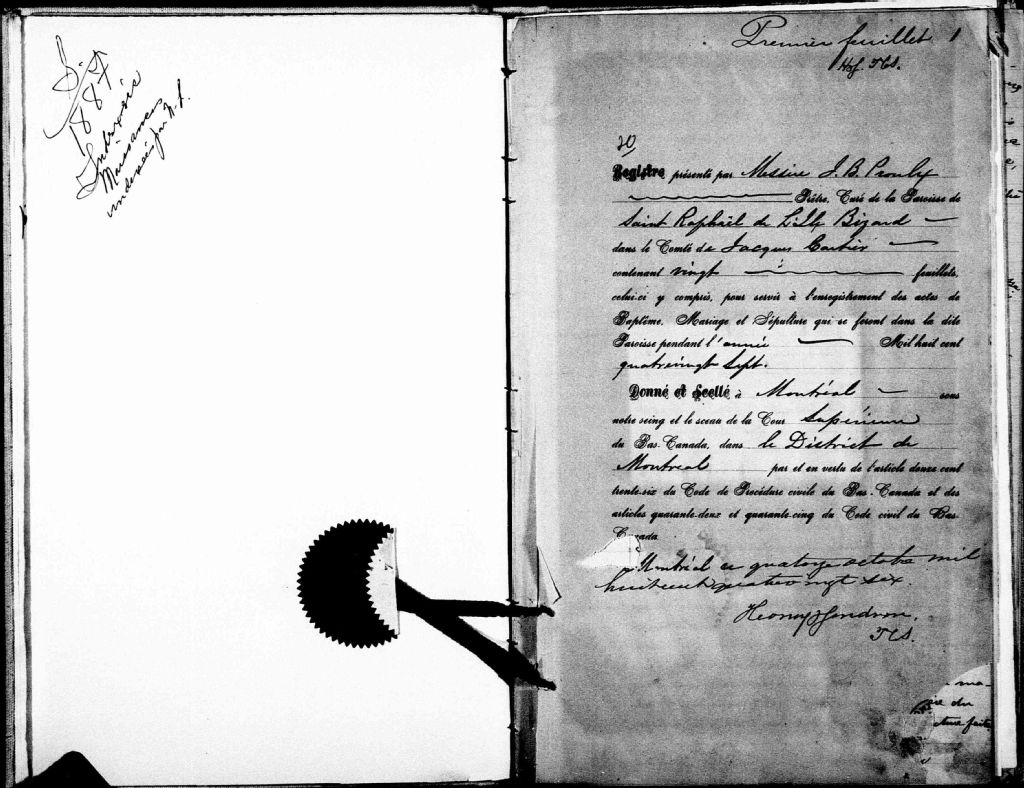 1887
Indexée
Naissances
indexées par
Premier feuillet 1
H. J. T.C.S.
20
Registre présenté par Messire J. B. Proulx
Prêtre, Curé de la Paroisse de
Saint Raphaël de L'Isle Bizard
dans le Comté de Jacques Cartier
contenant vingt feuillets,
celui-ci y compris, pour servir à l'enregistrement des actes de
Baptême, Mariage et Sépulture qui se feront dans la dite
Paroisse pendant l'année Mil huit cent
quatrevingt Sept.
Donné et Scellé à Montréal sous
notre seing et le sceau de la Cour Supérieure
du Bas-Canada, dans le District de
Montreal par et en vertu de l'article douze cent
trente-six du Code de Procédure civile du Bas-Canada et des
articles quarante-deux et quarante-cinq du Code civil du Bas-
Canada
Montréal ce quatorze octobre mil
huitcent quatre vingt six.
Gendron,
T.C.S.
ma-
du
faite